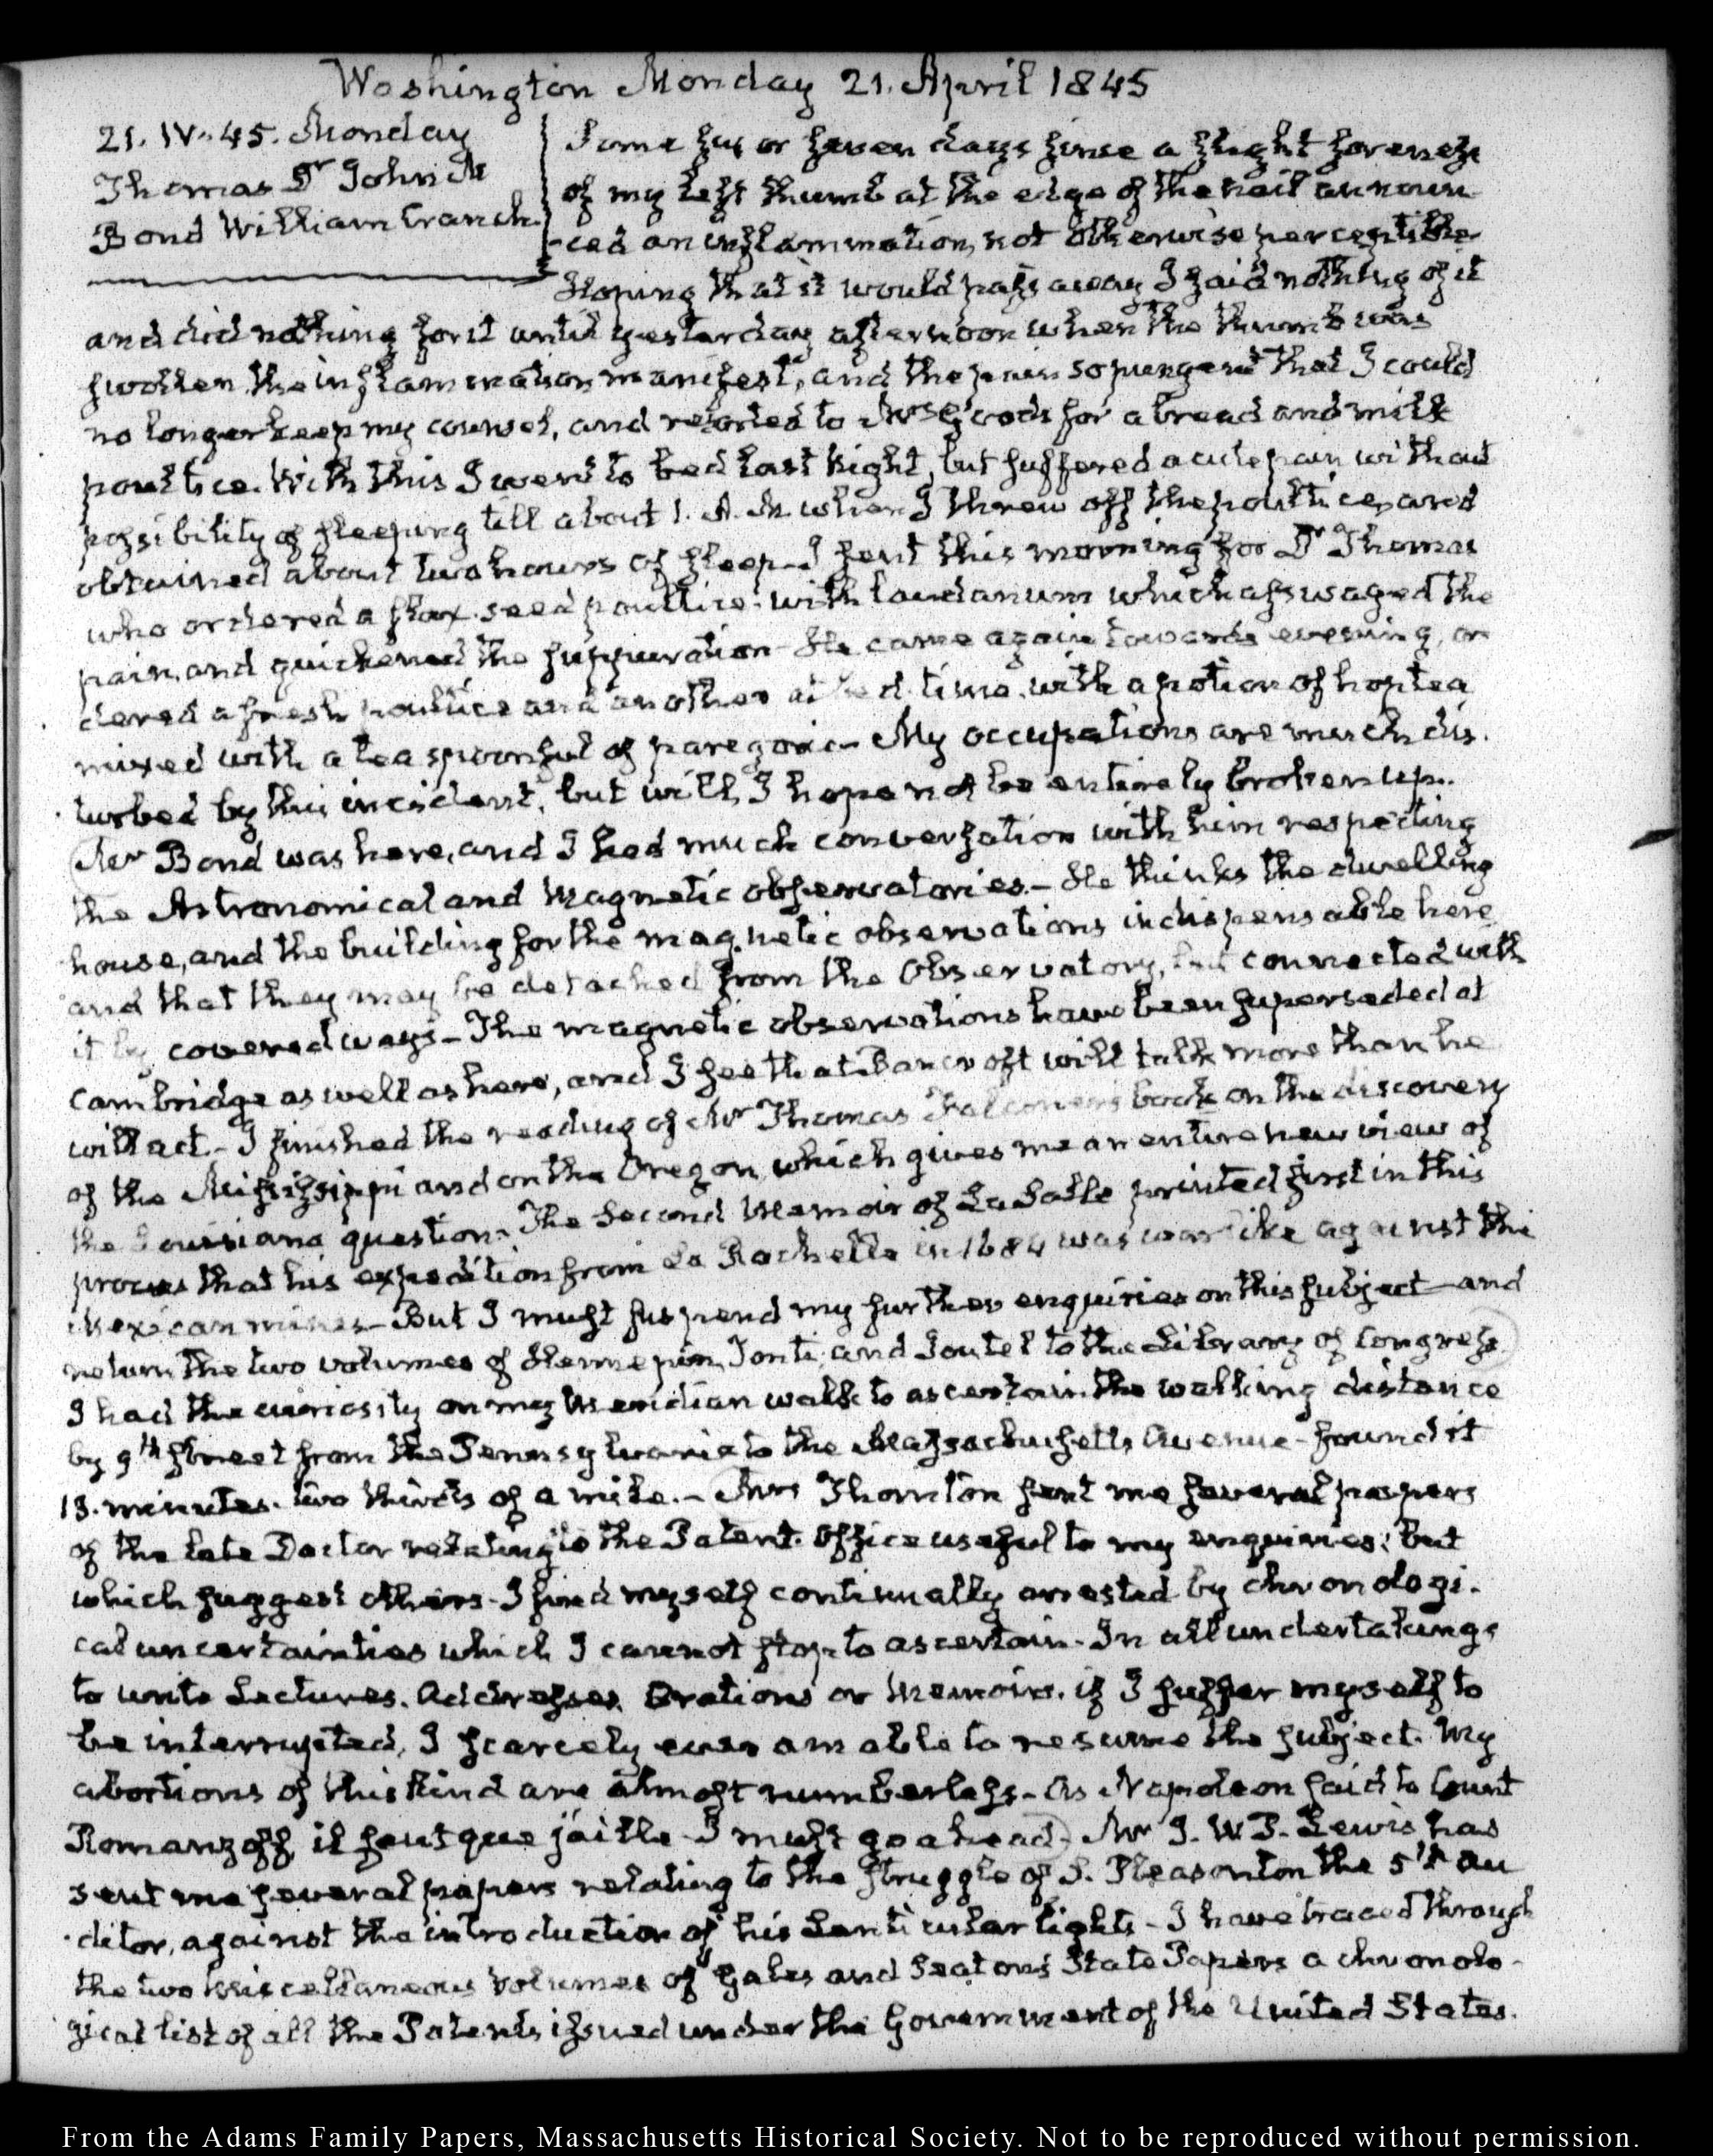 Washington Monday 21. April 1845
21. IV. 45. Monday
Thomas Dr John M
Bond William Cranch.
Some six or seven days since a slight soreness
of my left thumb at the edge of the nail announ-
-ced an inflammation, not otherwise perceptible
Hoping that it would pass away I said nothing of it
and did nothing for it until yesterday afternoon when the thumb was
swollen the inflammation manifest, and the pain so pungent that I could
no longer keep my counsel, and resorted to for a bread and milk
poultice. With this I went to bed last Night, but suffered acute pain without
possibility of sleeping till about 1. A.M. when I threw off the poultice, and
obtained about two hours of sleep. I sent this morning for Dr Thomas
who ordered a flax-seed poultice with laudanum which assuaged the
pain, and quickened the suppuration. He came again towards evening, or
dered a fresh poultice and another at bed-time, with a potion of hop tea
mixed with a teaspoonful of paregoric. My occupations are much dis-
turbed by this incident, but will I hope not be entirely broken up.
Mr Bond was here, and I had much conversation with him respecting
the Astronomical and Magnetic observatories.— He thinks the dwelling
house, and the building for the magnetic observations indispensable here
and that they may be detached from the Observatory, but connected with
it by covered ways— The magnetic observations have been superseded at
Cambridge as well as here, and I see that Bancroft will talk more than he
will act.— I finished the reading of Mr Thomas Falconer's book on the discovery
of the Mississippi and on the Oregon, which gives me an entire new view of
the Louisiana question. The Second Memoir of La Salle printed first in this
proves that his expedition from La Rochelle in 1684 was warlike against the
Mexican mines— But I must suspend my further enquiries on this subject— and
return the two volumes of Hennepin, Tonti, and Joutel to the Library of Congress.
I had the curiosity on my Meridian walk to ascertain the walking distance
by 9th street from the Pennsylvania to the Massachusetts Avenue— found it
13. minutes. two thirds of a mile.— Mrs Thornton sent me several papers
of the late Doctor relating to the Patent-Office useful to my enquiries; but
which suggest others. I find myself continually arrested by chronologi-
cal uncertainties which I cannot stop to ascertain. In all undertakings
to write Lectures. Addresses. Orations or Memoirs. if I suffer myself to
be interrupted, I scarcely ever am able to resume the subject. My
abortions of this kind are almost numberless— As Napoleon said to Count
Romanzoff, il faut que j'aille. I must go ahead. Mr I. W. P. Lewis has
sent me several papers relating to the struggle of S. Pleasonton the 5th Au
-ditor, against the introduction of his Lenticular lights— I have traced through
the two Miscellaneous Volumes of Gales and Seaton's State Papers a chronolo-
gical list of all the Patents issued under the Government of the United States.
From the Adams Family Papers, Massachusetts Historical Society. Not to be reproduced without permission.